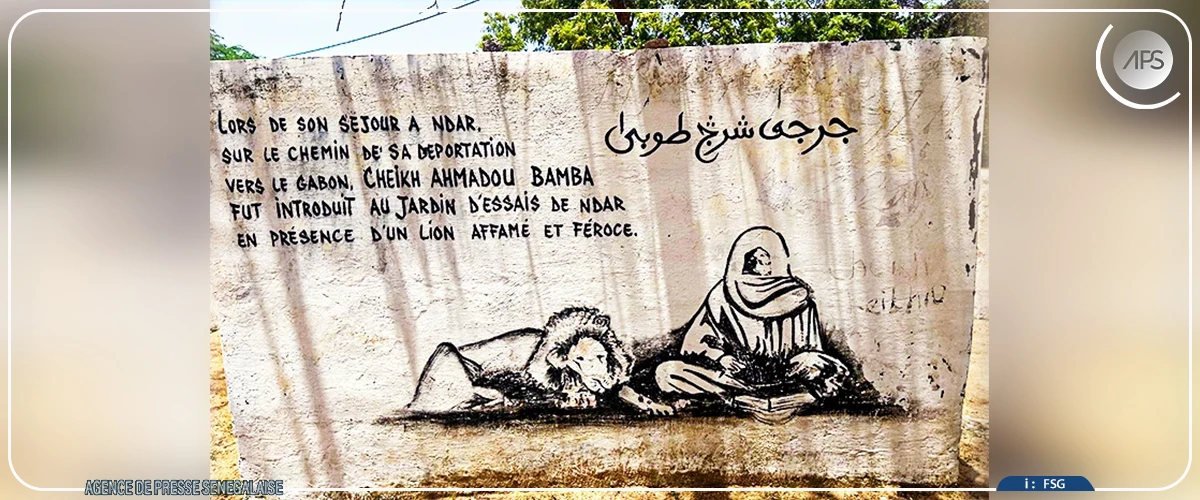 LORS DE SON SÉJOUR A NDAR,
SUR LE CHEMIN DE SA DEPORTATION
VERS LE GABON, CHEIKH AHMADOU BAMBA
FUT INTRODUIT AU JARDIN D'ESSAIS DE NDAR
EN PRÉSENCE D'UN LION AFFAMÉ ET FÉROCE.
APS
AGENCE DE PRESSE SENEGALAISE
i : FSG